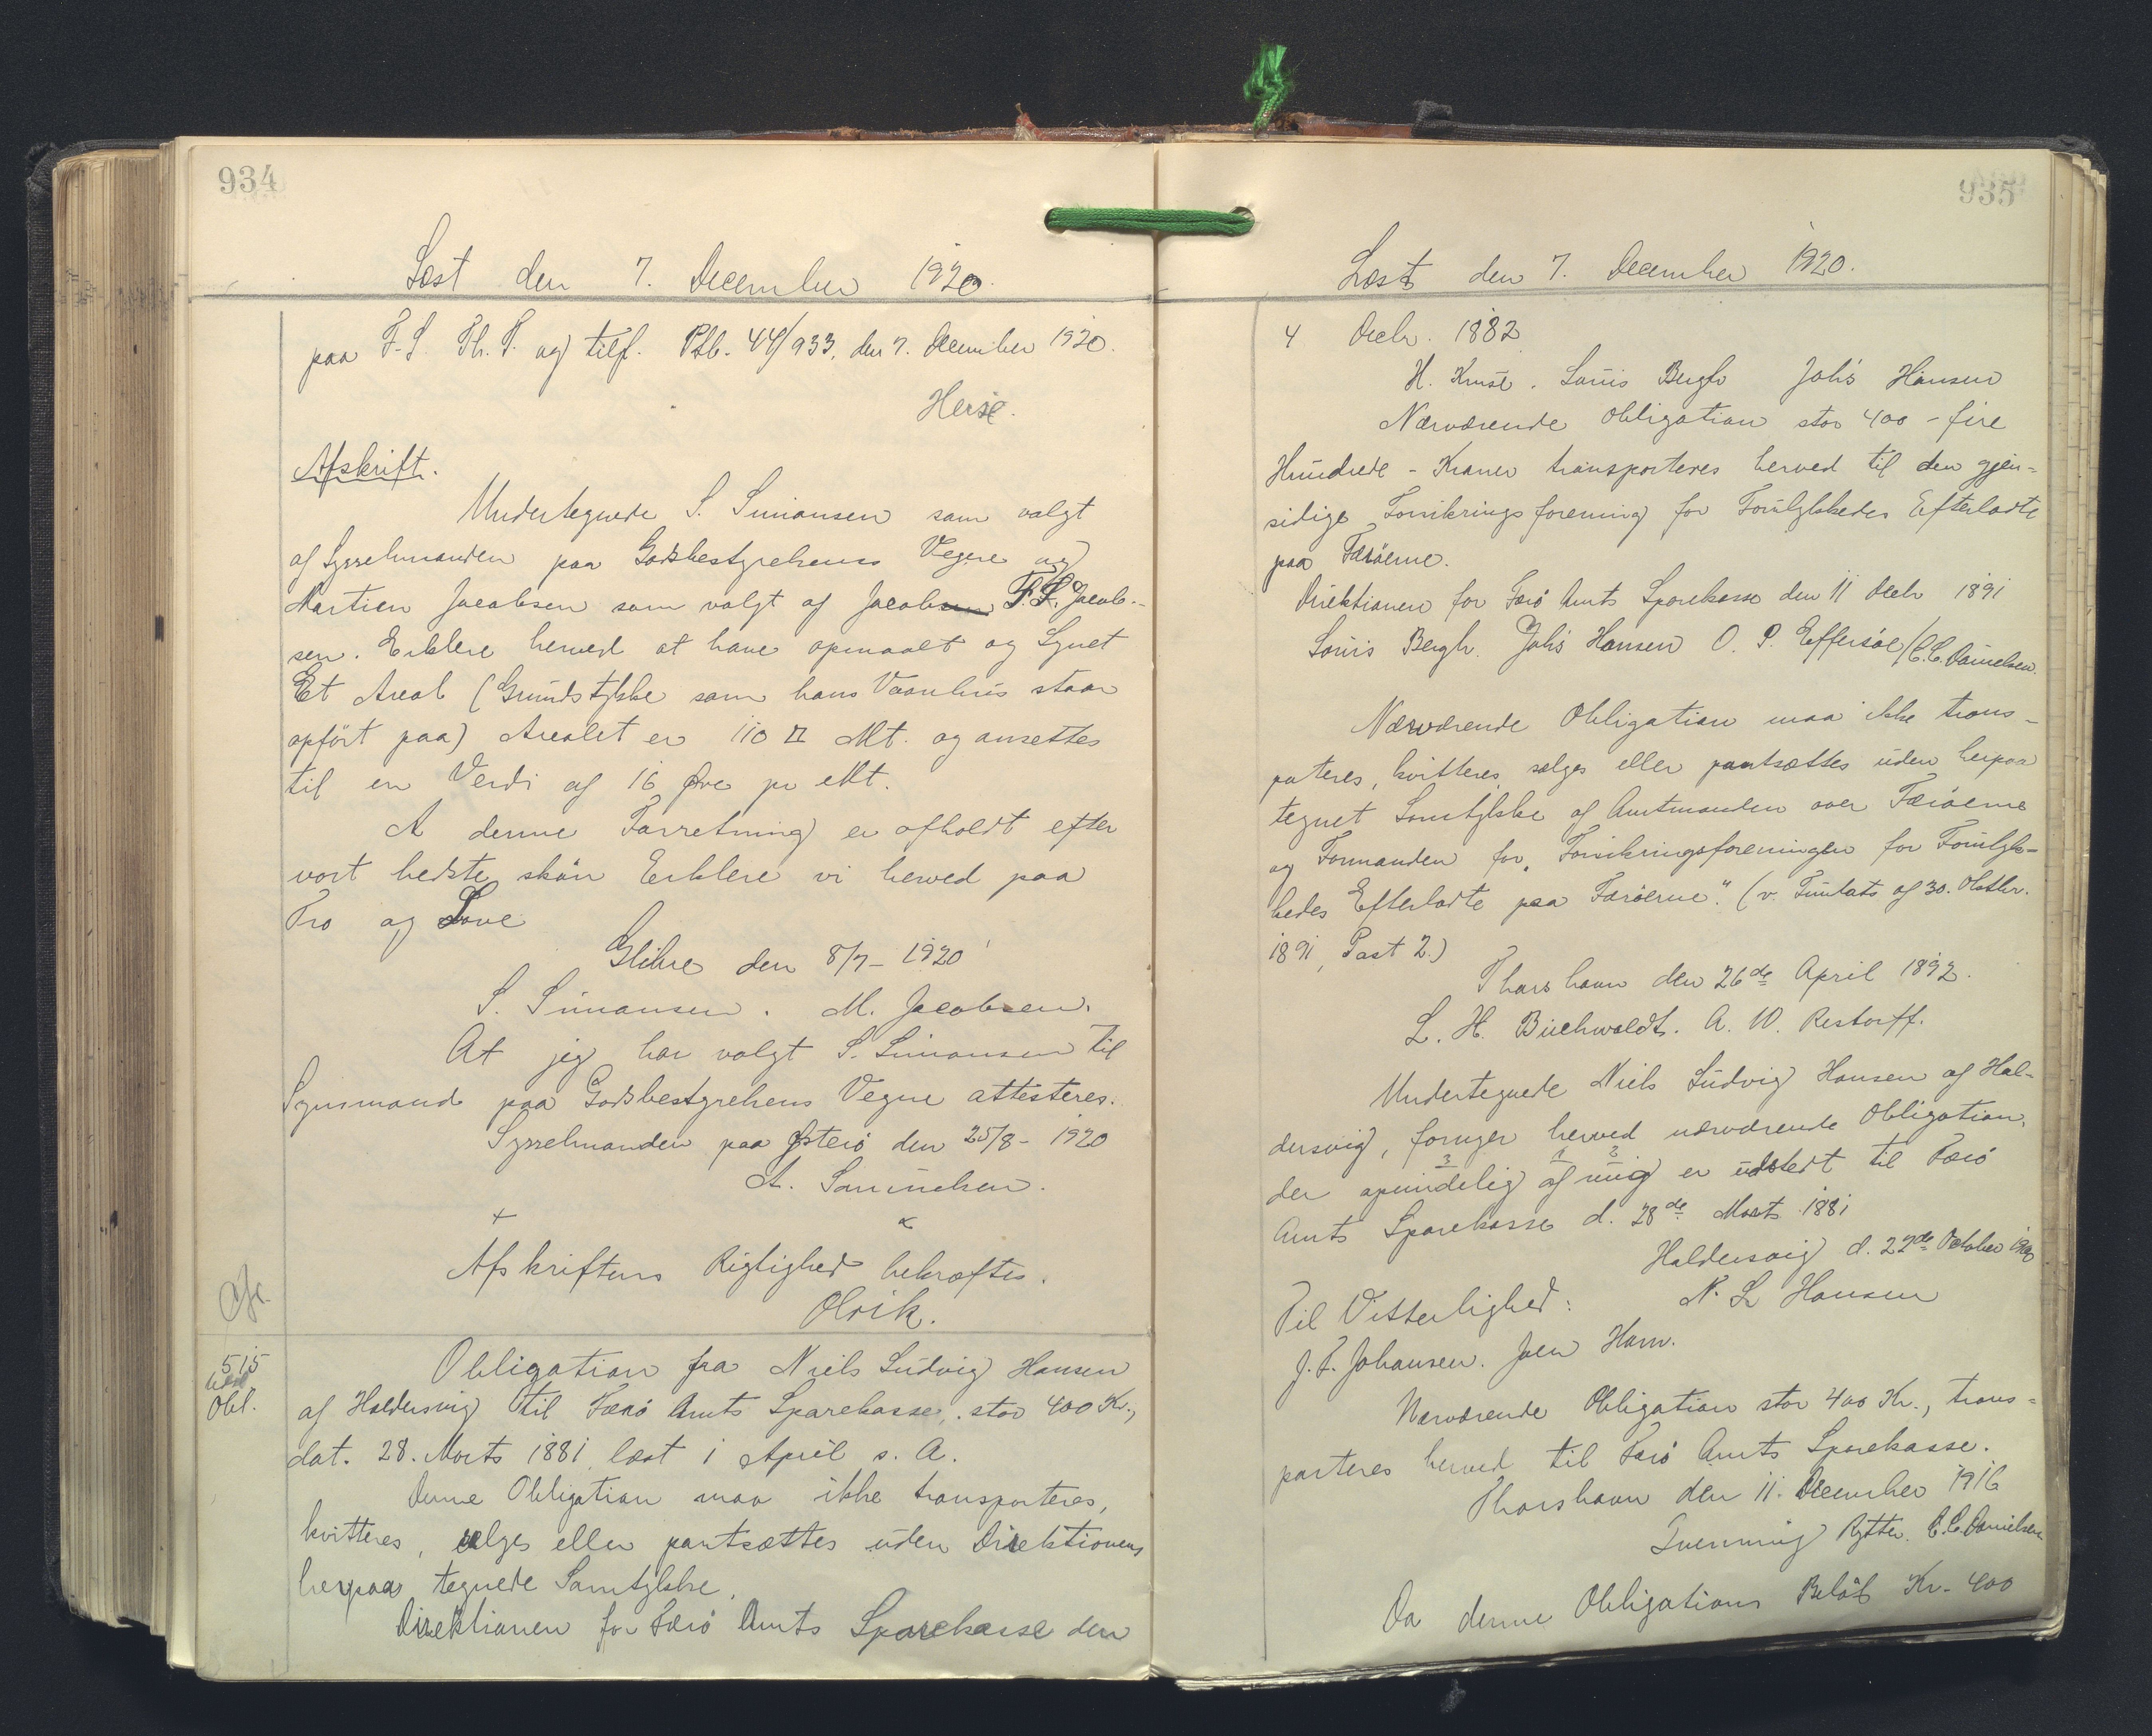 934
Læst den 7. December 1920.
paa F.S. Th. P. og tilf. Ptb. 44/933, den 7. December 1920.
Heise.
Afskrift.
Undertegnede S. Simonsen som valgt
af Sysselmanden paa Godsbestyrelsens Vegne og
Martien Jacobsen som valgt af Jacobsen F. S. Jacob-
sen. Erklere herved at have opmaalt og Synet
Et Areal (Grundstykke som hans Vaanhus staar
opført paa) Arealet er 110 □ Mt. og ansettes
til en Verdi af 16 Øre pr Mt.
At denne Forretning er afholdt efter
vort bedste skøn Erklere vi herved paa
Tro og Love
Glibre den 8/7 - 1920
S. Simonsen. M. Jacobsen.
At jeg har valgt S. Simonsen til
Synsmand paa Godsbestyrelsens Vegne attesteres.
Sysselmanden paa Østerø den 25/8 - 1920
A. Samuelsen.
Afskriftens Rigtighed bekræftes.
Olrik.
515
Obl.
Obligation fra Niels Ludvig Hansen
af Haldersvig til Færø Amts Sparekasse, stor 400 Kr.,
dat. 28. Marts 1881 læst i April s. A.
Denne Obligation maa ikke transporteres,
kvitteres, sælges eller pantsættes uden Direktionens
herpaa tegnede Samtykke.
Direktionen for Færø Amts Sparekasse den
935
Læst den 7. December 1920.
4 Decbr. 1882
H. Kruse. Louis Bergh Johs Hansen
Nærværende Obligation stor 400 - fire
Hundrede - Kroner transporteres herved til den gjen-
sidige Forsikringsforening for Forulykkedes Efterladte
paa Færøerne.
Direktionen for Færø Amts Sparekasse den 11 Decbr 1891
Louis Bergh. Johs Hansen O. P. Effersøe / C. C. Danielsen.
Nærværende Obligation maa ikke trans-
poteres, kvitteres, sælges eller pantsættes uden herpaa
tegnet Samtykke af Amtmanden over Færøerne
og Formanden for "Forsikringsforeningen for Forulyk-
kedes Efterladte paa Færøerne." (v. Fundats af 30. Oktbr.
1891, Post 2.)
Thorshavn den 26de April 1892.
L. H. Buchwaldt. A. W. Restorff.
Undertegnede Niels Ludvig Hansen af Hal-
dersvig, fornyer herved nærværende Obligation,
der oprindelig af mig er udstedt til Færø
Amts Sparekasse d. 28de Marts 1881
Haldersvig d. 22de October
Til Vitterlighed: N. L Hansen
J. P. Johansen. Joen Ham.
Nærværende Obligation stor 400 Kr., trans-
porteres herved til Færø Amts Sparekasse.
Thorshavn den 11. December 1916
Svenning Rytter. C. C. Danielsen
Da denne Obligations Beløb Kr. 400